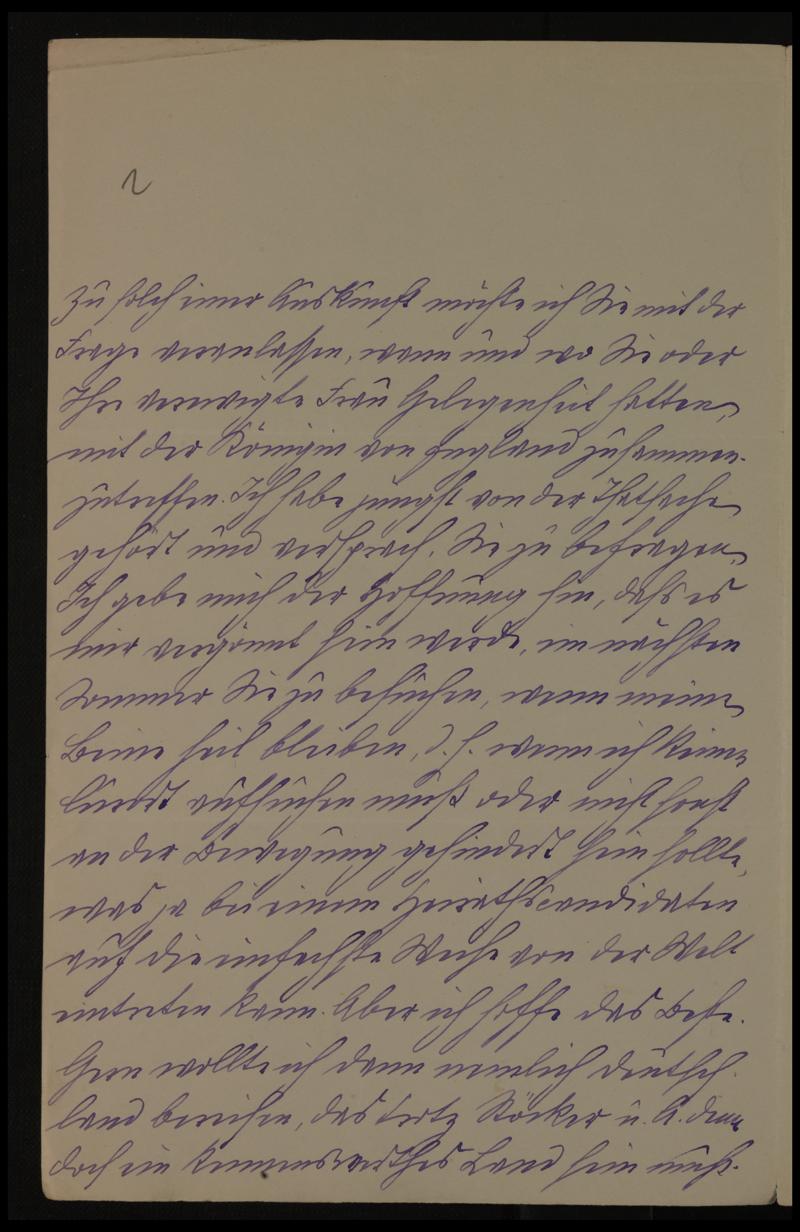 2
Zu solch einer Auskunft möchte ich Sie mit der
Frage veranlassen, wann und wo Sie oder
Ihre verewigte Frau Gelegenheit hatten,
mit der Königin von England zusammen-
zutreffen. Ich habe jüngst von der Thatsache
gehört und versprach, Sie zu befragen.
Ich gebe mich der Hoffnung hin, dass es
mir vergönnt sein werde, im nächsten
Sommer Sie zu besuchen, wenn meine
Beine heil bleiben, d. h. wenn ich keinen
Curort aufsuchen muß oder nicht sonst
an der Bewegung gehindert sein sollte,
was ja bei einem Heirathscandidaten
auf die einfachste Weise von der Welt
eintreten kann. Aber ich hoffe das Beste.
Gern wollte ich dann nemlich Deutsch-
land bereisen, das trotz Stöcker u. A. denn
doch ein kennenswerthes Land sein muß.